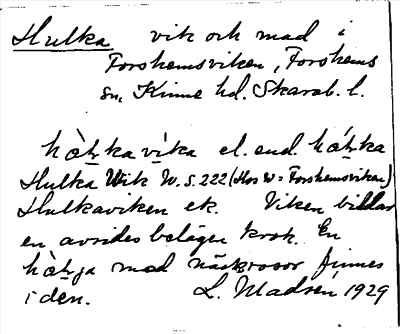 Hulka vik och mad i
Forshemsviken, Forshems
sn, Kinne hd. Skarab. l.
hòʈka vìka el. end. hóʈka
Hulka Wik W. S. 222 (Hos W = Forshemsviken)
Hulkaviken ek. Viken bildar
en avsides belägen krok. En
mad näckrosor finnes
i den. L. Madsén 1929